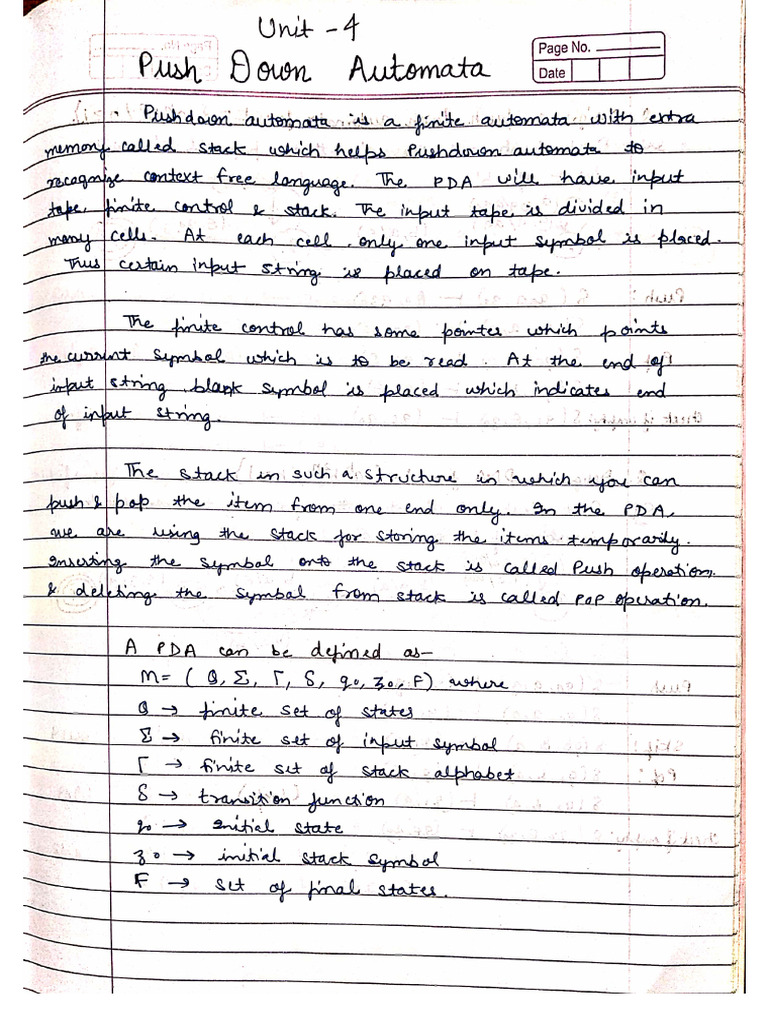 Unit - 4
Push Down Automata
Page No.
Date
Pushdown automata is a finite automata with extra
memory called stack which helps Pushdown automata to
recognize context free language. The PDA will have input
tape, finite control & stack. The input tape is divided in
many cells. At each cell only one input symbol is placed.
Thus certain input string is placed on tape.
The finite control has some pointer which points
the current symbol which is to be read. At the end of
input string blank symbol is placed which indicates end
of input string.
The stack in such a structure in which you can
push & pop the item from one end only. In the PDA,
we are using the stack for storing the items temporarily.
Inserting the symbol onto the stack is called Push operation.
& deleting the symbol from stack is called POP operation.
A PDA can be defined as-
M = ( Q, Σ, Γ, δ, q0, z0, F) where
Q → finite set of states
Σ → finite set of input symbol
Γ → finite set of stack alphabet
δ → transition function
q0 → Initial state
z0 → initial stack symbol
F → set of final states.